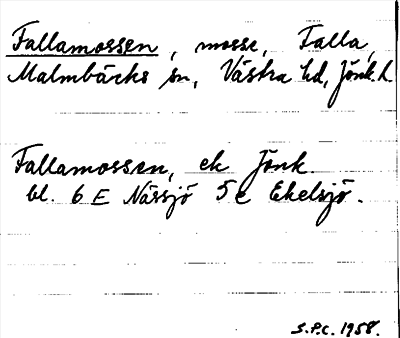 Fallamossen, mosse, Falla,
Malmbäcks sn, Västra hd, Jönk. l.
Fallamossen, ek Jönk.
bl. 6 E Nässjö 5 e Ekelsjö.
S.P.C. 1958.